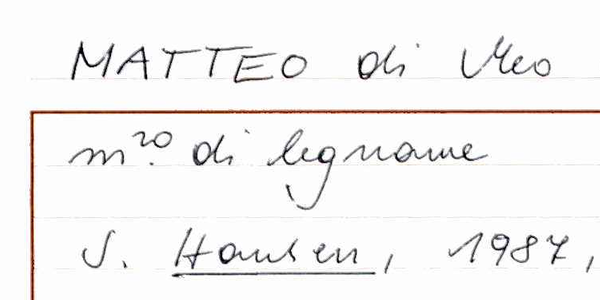 MATTEO di Meo
m.ro di legname
S. Hansen, 1987,